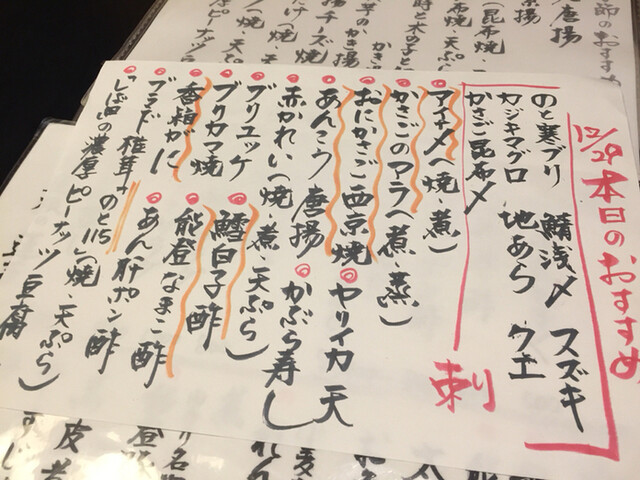 12/29 本日のおすすめ
のと寒ブリ 鯖浅〆 スズキ
カジキマグロ 地あら クエ
かさご昆布〆
刺
アイナメ(焼、煮)
かさごのアラ(煮、蒸)
おにかさご西京焼
ヤリイカ天
あんこう唐揚
赤かれい(焼、煮、天ぷら)
かぶら寿し
ブリユッケ
ブリカマ焼
鱈白子酢
香箱がに
能登なまこ酢
ブランド椎茸"のと115"(焼、天ぷら)
あん肝ポン酢
しば田の濃厚ピーナッツ豆腐
節のおすすめ
唐揚
(昆布焼、
布焼、天ぷら
芋のかき揚
揚チーズ焼
厚ピーナッツ